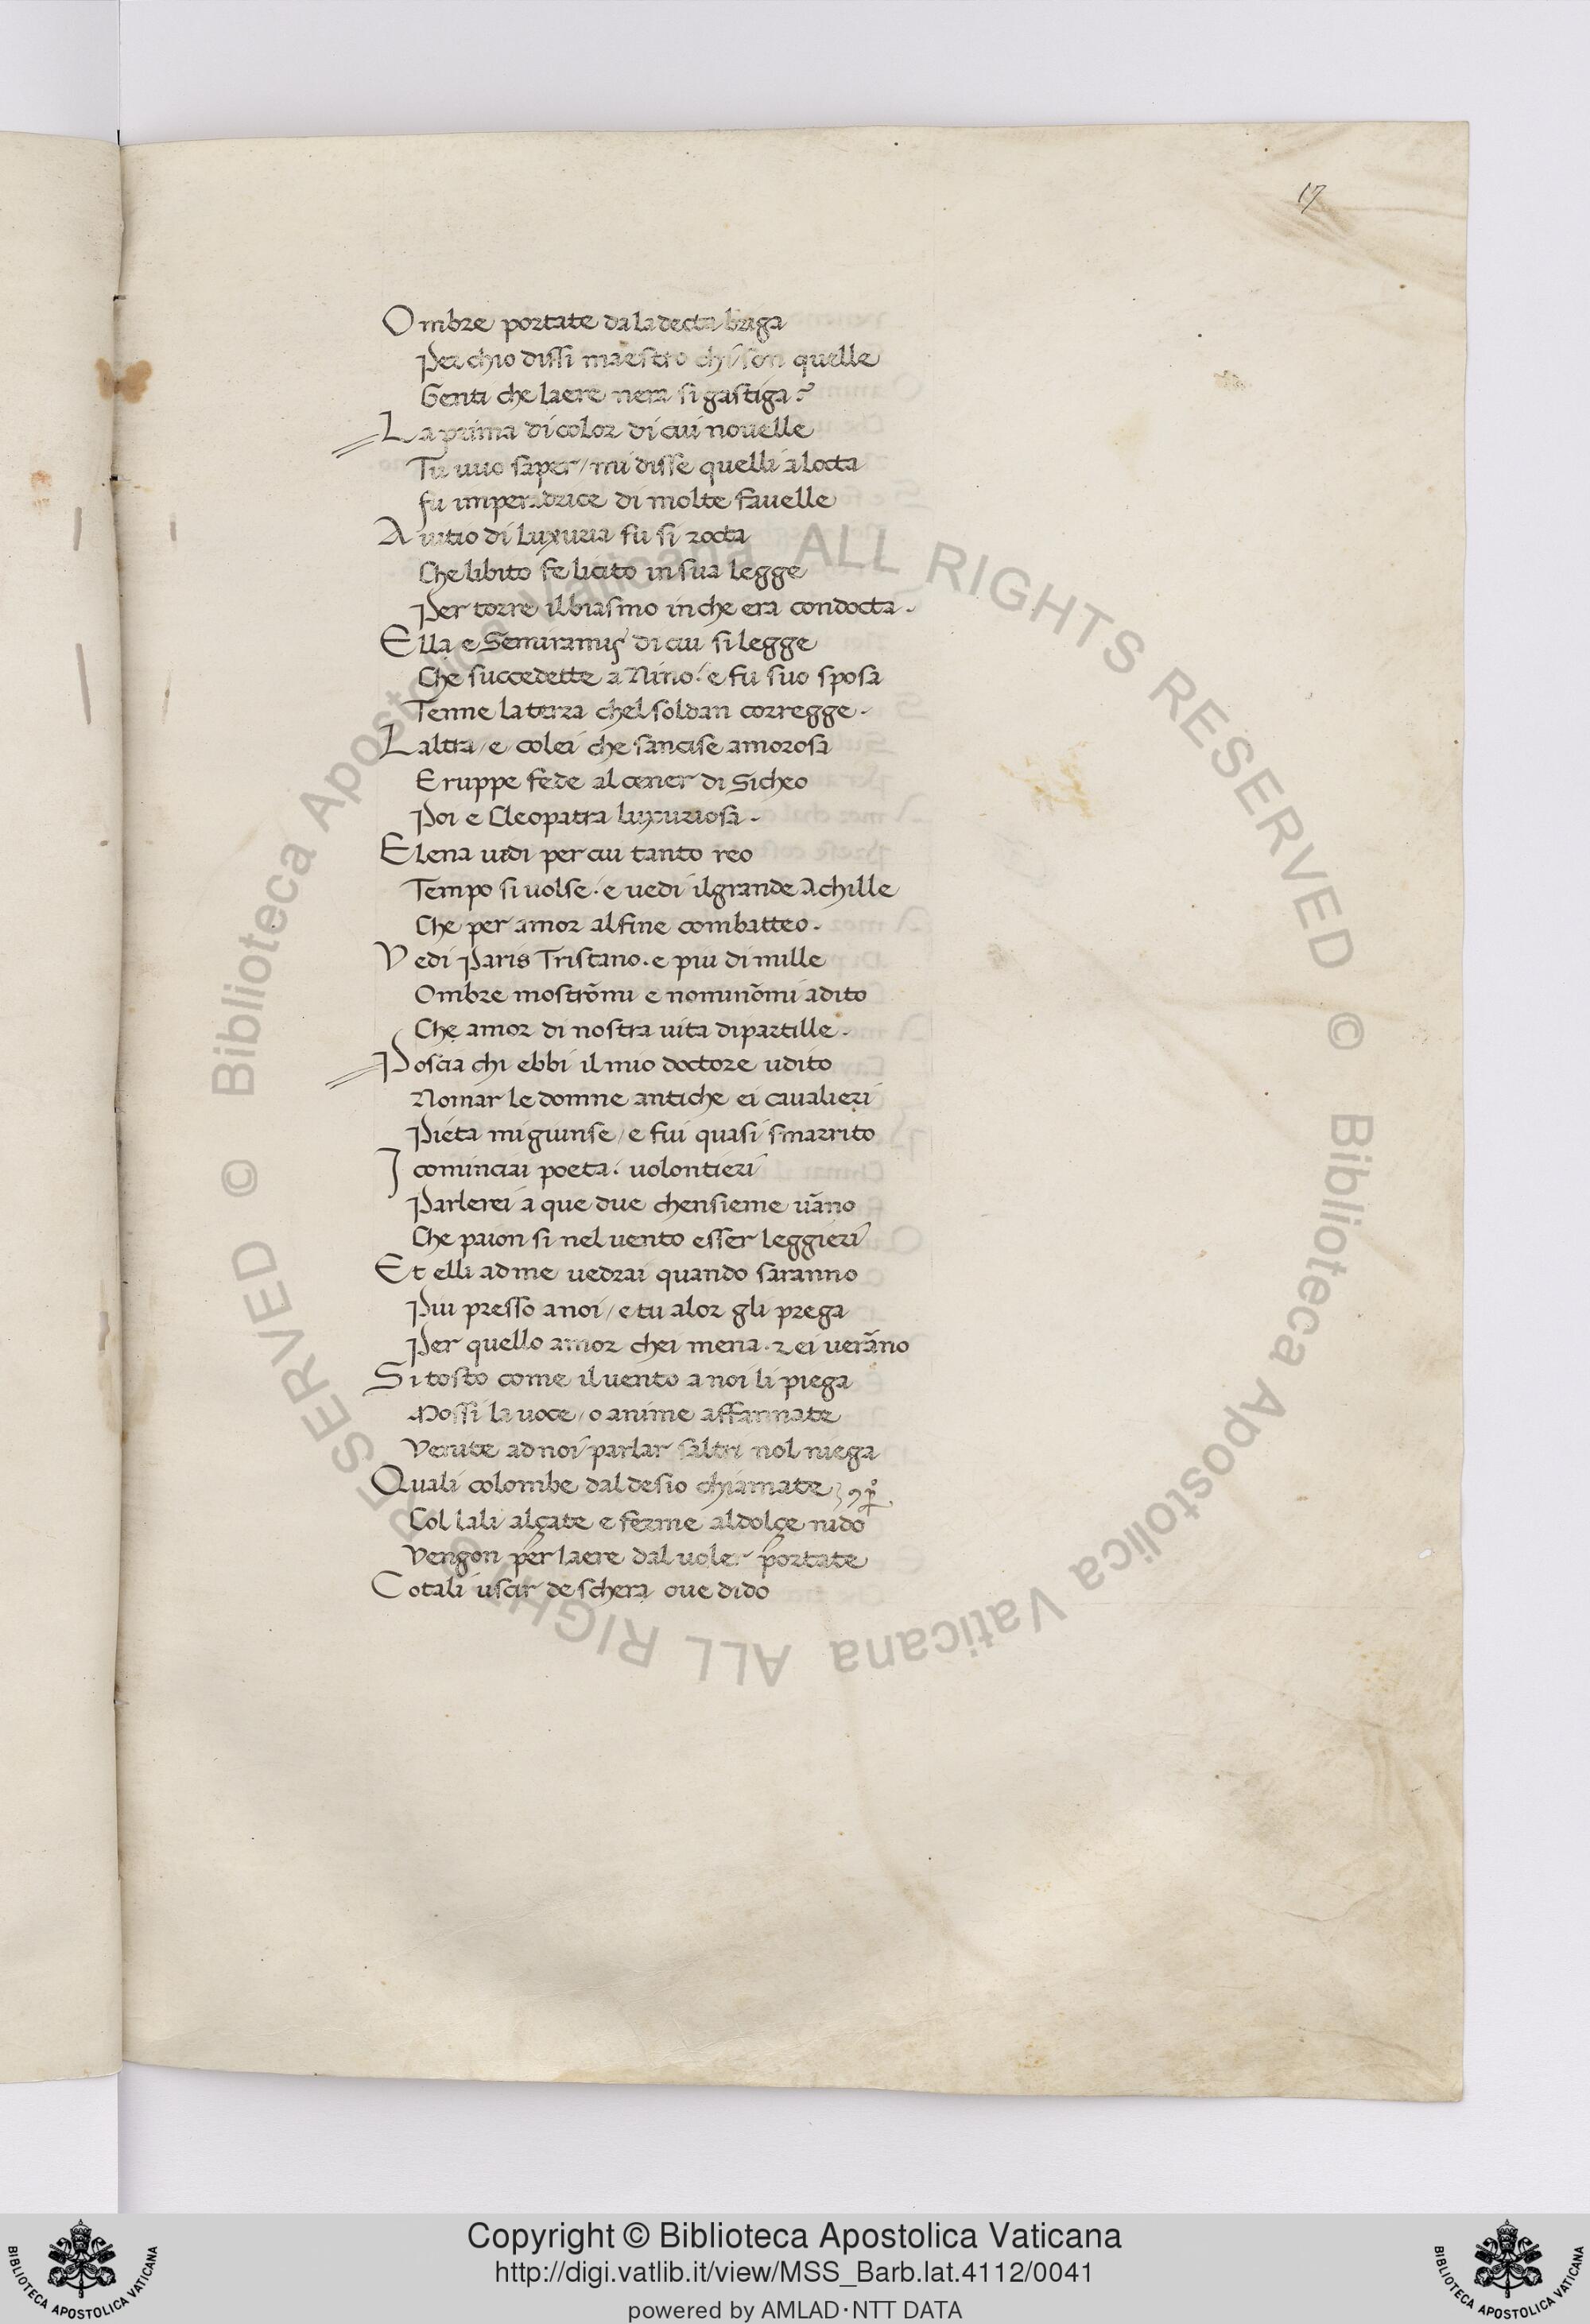 17
Ombre portate da la decta briga
Per chio dissi maestro chi son quelle
Genti che laere nera si gastiga?
La prima di color di cui nouelle
Tu vuo saper / mi disse quelli alocta
fu imperadrice di molte fauelle
A uitio di luxuria fu si rocta
Che libito fe licito in sua legge
Per torre il biasmo in che era condocta.
Ella e Semiramis di cui si legge
Che succedette a Nino. e fu suo sposa
Tenne la terra chel soldan corregge.
Laltra / e colei che sancise amorosa
E ruppe fede al cener di Sicheo
Poi e Cleopatra luxuriosa.
Elena uidi per cui tanto reo
Tempo si uolse. e vedi il grande Achille
Che per amor al fine combatteo.
Vedi Paris Tristano. e piu di mille
Ombre mostrōmi e nominōmi adito
Che amor di nostra uita dipartille.
Poscia chi ebbi il mio doctore udito
Nomar le donne antiche ei caualieri
Pieta mi giunse / e fui quasi smarrito
I cominciai poeta. uolontieri
Parlerei a que due chensieme uāno
Che paion si nel uento esser leggieri
Et elli ad me uedrai quando saranno
Piu presso a noi / e tu alor gli prega
Per quello amor chei mena. ⁊ ei uerāno
Si tosto come il uento a noi li piega
Mossi la uoce / o anime affannate
Venite ad noi parlar saltri nol niega
Quali colombe dal desio chiamate
Col lali alçate e ferme al dolçe nido
Vengon per laere dal uoler portate
Cotali uscir de schera oue dido
ALL RIGHTS RESERVED © Biblioteca Apostolica Vaticana ALL RIGHTS RESERVED © Biblioteca Apostolica Vaticana
Copyright © Biblioteca Apostolica Vaticana
http://digi.vatlib.it/view/MSS_Barb.lat.4112/0041
powered by AMLAD·NTT DATA
BIBLIOTECA APOSTOLICA VATICANA
BIBLIOTECA APOSTOLICA VATICANA